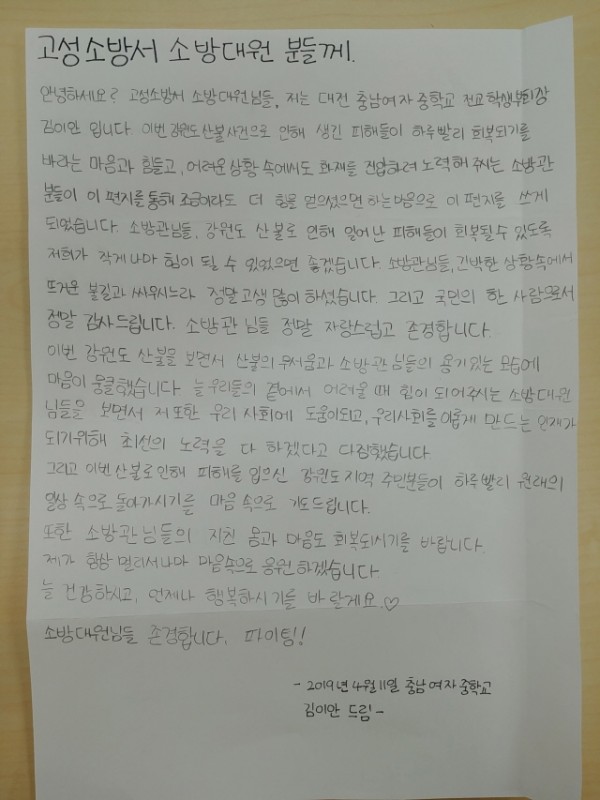 고성소방서 소방대원 분들께.
안녕하세요? 고성소방서 소방대원님들, 저는 대전 충남여자 중학교 전교학생부회장
김이안 입니다. 이번 강원도 산불 사건으로 인해 생긴 피해들이 하루빨리 회복되기를
바라는 마음과 힘들고, 어려운 상황 속에서도 화재를 진압하려 노력해 주시는 소방관
분들이 이 편지를 통해 조금이라도 더 힘을 얻으셨으면 하는 마음으로 이 편지를 쓰게
되었습니다. 소방관님들, 강원도 산불로 인해 일어난 피해들이 회복될 수 있도록
저희가 작게나마 힘이 될 수 있었으면 좋겠습니다. 소방관님들, 긴박한 상황속에서
뜨거운 불길과 싸우시느라 정말 고생 많이 하셨습니다. 그리고 국민의 한 사람으로서
정말 감사드립니다. 소방관 님들 정말 자랑스럽고 존경합니다.
이번 강원도 산불을 보면서 산불의 무서움과 소방관 님들의 용기있는 모습에
마음이 뭉클했습니다 늘 우리들의 곁에서 어려울 때 힘이 되어주시는 소방대원
님들을 보면서 저 또한 우리 사회에 도움이되고, 우리사회를 이롭게 만드는 인재가
되기위해 최선의 노력을 다 하겠다고 다짐했습니다
그리고 이번 산불로 인해 피해를 입으신 강원도 지역 주민분들이 하루 빨리 원래의
일상 속으로 돌아가시기를 마음 속으로 기도드립니다.
또한 소방관님들의 지친 몸과 마음도 회복되시기를 바랍니다.
제가 항상 멀리서나마 마음속으로 응원하겠습니다
늘 건강하시고, 언제나 행복하시기를 바랄게요.♡
소방대원님들 존경합니다. 파이팅!
- 2019년 4월 11일 충남여자 중학교
김이안 드림 -